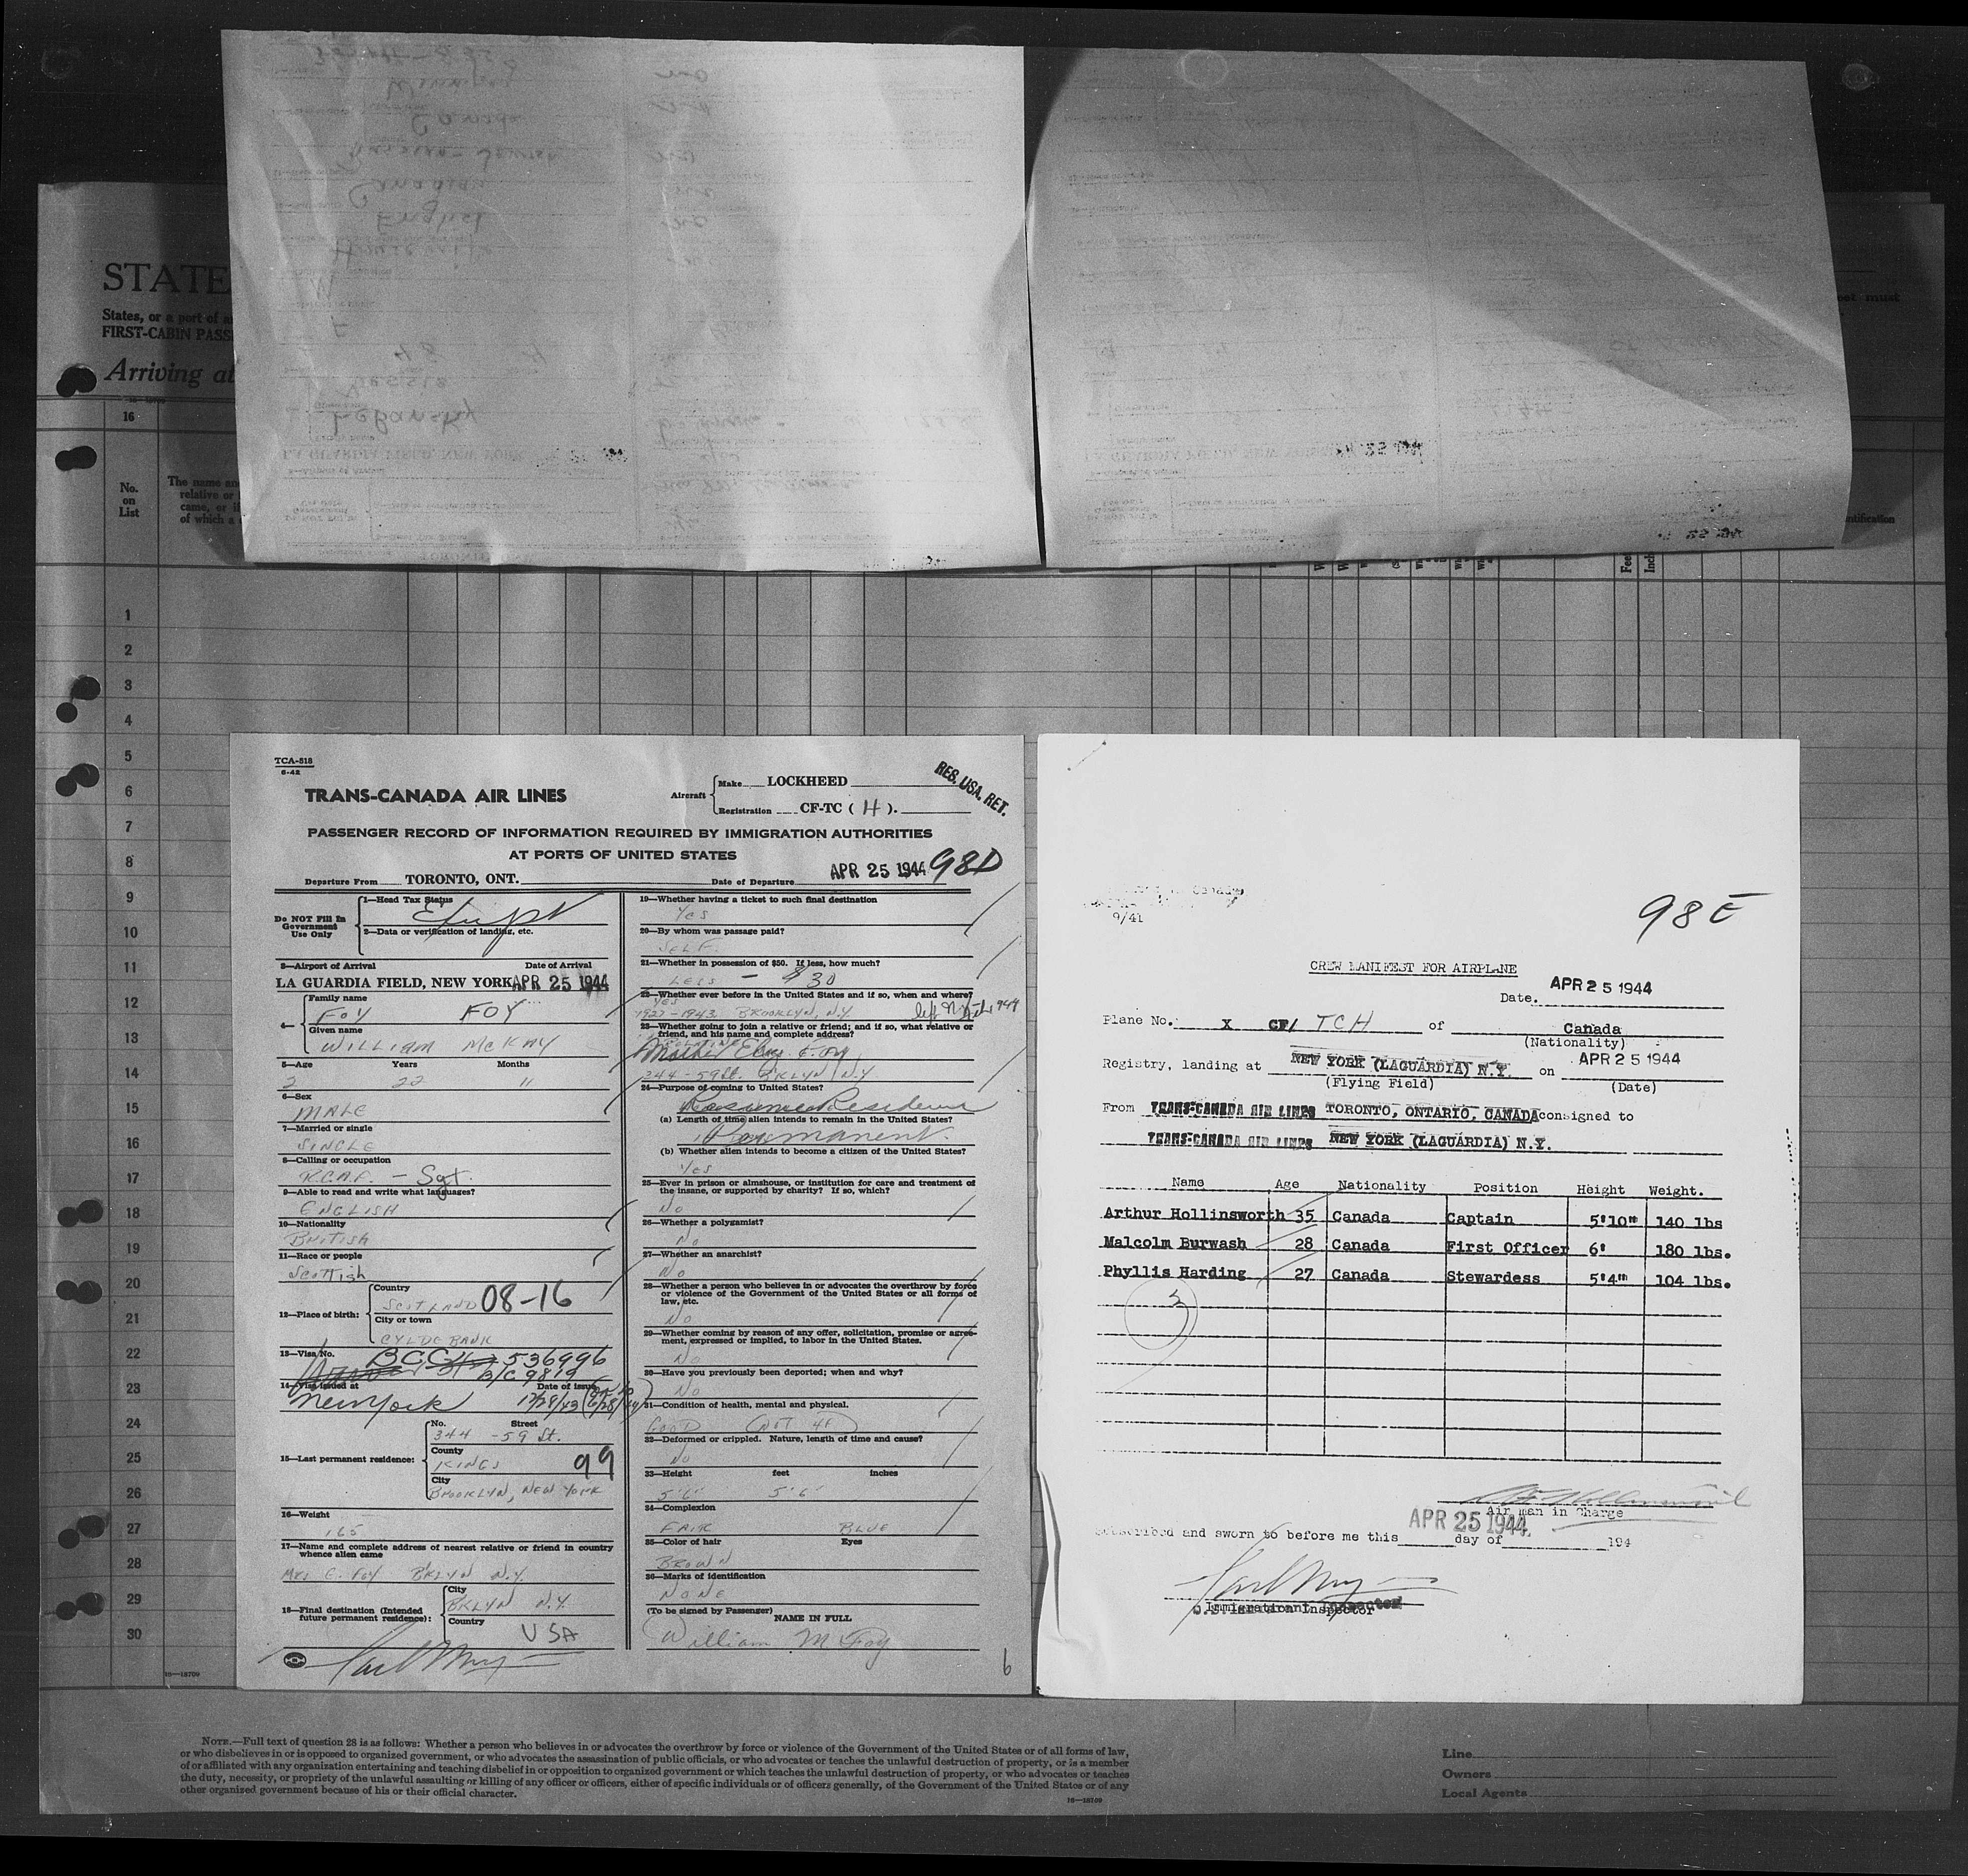 STATE
States, or a port of a
FIRST-CABIN PASS
Arriving at
16
No.
on
List
The name an
relative or
came, or i
of which a
must
ntification
1
2
3
4
5
6
7
8
9
10
11
12
13
14
15
16
17
18
19
20
21
22
23
24
25
26
27
28
29
30
16—18709
TCA-518
6-42
TRANS-CANADA AIR LINES
Aircraft
Make LOCKHEED
Registration CF-TC ( H ).
RES. USA. RET.
PASSENGER RECORD OF INFORMATION REQUIRED BY IMMIGRATION AUTHORITIES
AT PORTS OF UNITED STATES
APR 25 1944 98D
Departure From TORONTO, ONT. Date of Departure
Do NOT Fill In
Government
Use Only
1—Head Tax Status
2—Data or verification of landing, etc.
3—Airport of Arrival Date of Arrival
LA GUARDIA FIELD, NEW YORK APR 25 1944
4—
Family name
FOY FOY
Given name
WILLIAM McKAY
5—Age Years Months
2 22 11
6—Sex
MALE
7—Married or single
SINGLE
8—Calling or occupation
R.C.A.F. — Sgt.
9—Able to read and write what languages?
ENGLISH
10—Nationality
BRITISH
11—Race or people
Scottish
12—Place of birth:
Country
SCOTLAND 08-16
City or town
CYLDE BANK
13—Visa No. 536996
B/C 9819
14—Visa issued at Date of issue
New York 12/28/43
15—Last permanent residence:
No. Street
344 - 59 St.
County
KINGS 99
City
BROOKLYN, NEW YORK
16—Weight
165
17—Name and complete address of nearest relative or friend in country
whence alien came
Mrs E. FOY BKLYN N.Y.
18—Final destination (Intended
future permanent residence):
City
BKLYN N.Y.
Country
USA
19—Whether having a ticket to such final destination
Yes
20—By whom was passage paid?
SELF
21—Whether in possession of $50. If less, how much?
LESS — $30
22—Whether ever before in the United States and if so, when and where?
YES
1927-1943 BROOKLYN, N.Y.
23—Whether going to join a relative or friend; and if so, what relative or
friend, and his name and complete address?
Mother Foy
344 - 59 St. BKLYN N.Y.
24—Purpose of coming to United States?
Resume Residence
(a) Length of time alien intends to remain in the United States?
Permanent.
(b) Whether alien intends to become a citizen of the United States?
Yes
25—Ever in prison or almshouse, or institution for care and treatment of
the insane, or supported by charity? If so, which?
No
26—Whether a polygamist?
No
27—Whether an anarchist?
No
28—Whether a person who believes in or advocates the overthrow by force
or violence of the Government of the United States or all forms of
law, etc.
No
29—Whether coming by reason of any offer, solicitation, promise or agree-
ment, expressed or implied, to labor in the United States.
No
30—Have you previously been deported; when and why?
No
31—Condition of health, mental and physical.
GOOD
32—Deformed or crippled. Nature, length of time and cause?
No
33—Height feet inches
5'6" 5'6"
34—Complexion
FAIR BLUE
35—Color of hair Eyes
BROWN
36—Marks of identification
NONE
(To be signed by Passenger) NAME IN FULL
William M Foy
6
9/41
98E
CREW MANIFEST FOR AIRPLANE
Date. APR 25 1944
Plane No. X CF/ TCH of Canada
(Nationality)
Registry, landing at NEW YORK (LAGUARDIA) N.Y. on APR 25 1944
(Flying Field) (Date)
From TRANS-CANADA AIR LINES TORONTO, ONTARIO, CANADA consigned to
TRANS-CANADA AIR LINES NEW YORK (LAGUARDIA) N.Y.
Name Age Nationality Position Height Weight.
Arthur Hollinsworth 35 Canada Captain 5'10" 140 lbs
Malcolm Burwash 28 Canada First Officer 6' 180 lbs.
Phyllis Harding 27 Canada Stewardess 5'4" 104 lbs.
3
Air man in Charge
APR 25 1944
Subscribed and sworn to before me this day of 194
Immigration Inspector
NOTE.—Full text of question 28 is as follows: Whether a person who believes in or advocates the overthrow by force or violence of the Government of the United States or of all forms of law,
or who disbelieves in or is opposed to organized government, or who advocates the assassination of public officials, or who advocates or teaches the unlawful destruction of property, or is a member
of or affiliated with any organization entertaining and teaching disbelief in or opposition to organized government or which teaches the unlawful destruction of property, or who advocates or teaches
the duty, necessity, or propriety of the unlawful assaulting or killing of any officer or officers, either of specific individuals or of officers generally, of the Government of the United States or of any
other organized government because of his or their official character.
16—18709
Line
Owners
Local Agents